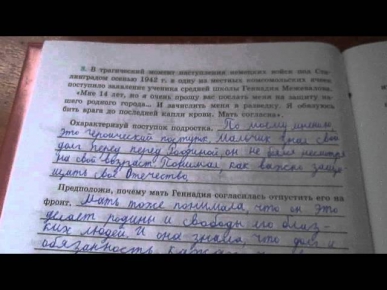 8. В трагический момент наступления немецких войск под Ста-
линградом осенью 1942 г. в одну из местных комсомольских ячеек
поступило заявление ученика средней школы Геннадия Межевалова.
«Мне 14 лет, но я очень прошу вас послать меня на защиту на-
шего родного города... И зачислить меня в разведку. Я обязуюсь
бить врага до последней капли крови. Мать согласна».
Охарактеризуй поступок подростка. По моему мнению
это героический поступок. Мальчик знал свой
долг перед перед Родиной, он не смотря
на свой возраст. Понимал, как важно защи
щать своё Отечество.
Предположи, почему мать Геннадия согласилась отпустить его на
фронт. Мать тоже понимала, что он это
делает родины и свободы его близ-
ких людей. И она знала, что долг и
обязанность